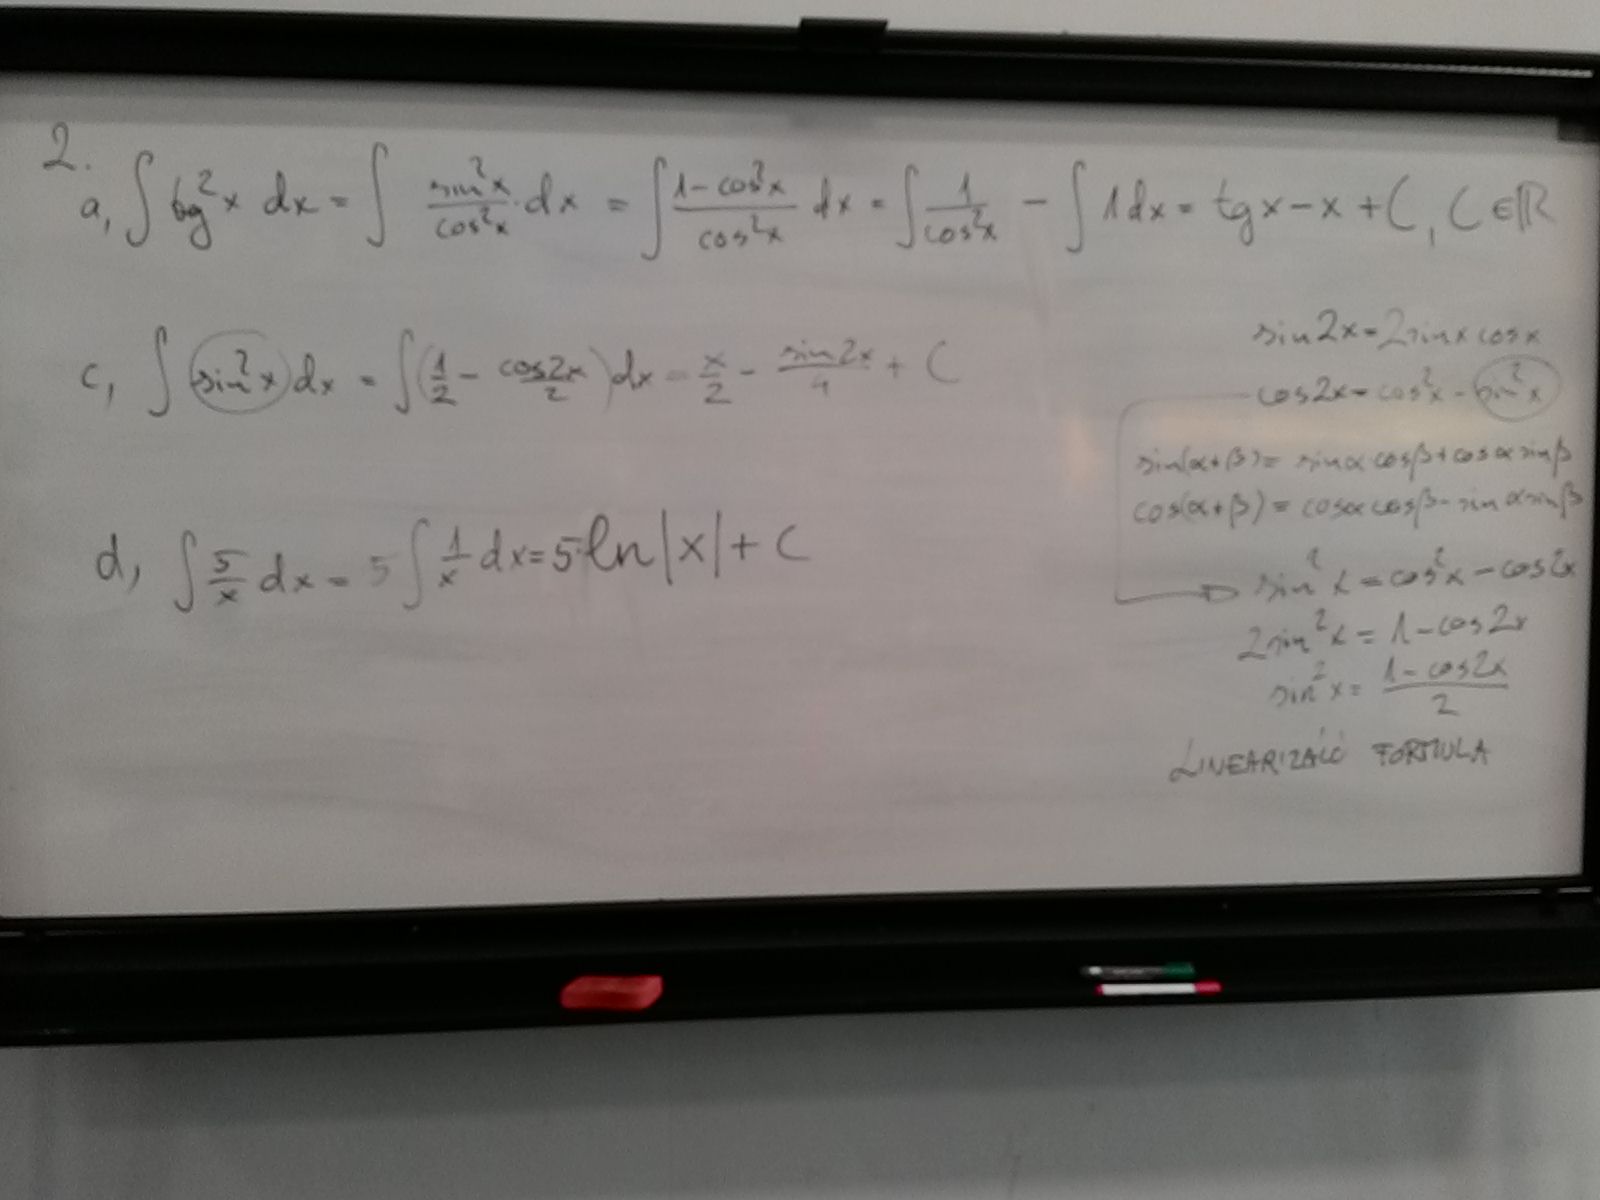 2.
a, ∫ tg²x dx = ∫ sin²x/cos²x · dx = ∫ (1-cos²x)/cos²x dx = ∫ 1/cos²x - ∫ 1 dx = tgx-x+C, C∈ℝ
c, ∫ sin²x dx = ∫(1/2 - cos2x/2)dx = x/2 - sin2x/4 + C
d, ∫ 5/x dx = 5 ∫ 1/x dx = 5·ln|x|+C
sin2x=2sinx cosx
cos2x=cos²x-sin²x
sin(α+β)= sinα cosβ+cosα sinβ
cos(α+β)= cosα cosβ-sinα sinβ
→ sin²x=cos²x-cos2x
2sin²x=1-cos2x
sin²x= (1-cos2x)/2
LINEARIZÁLÓ FORMULA